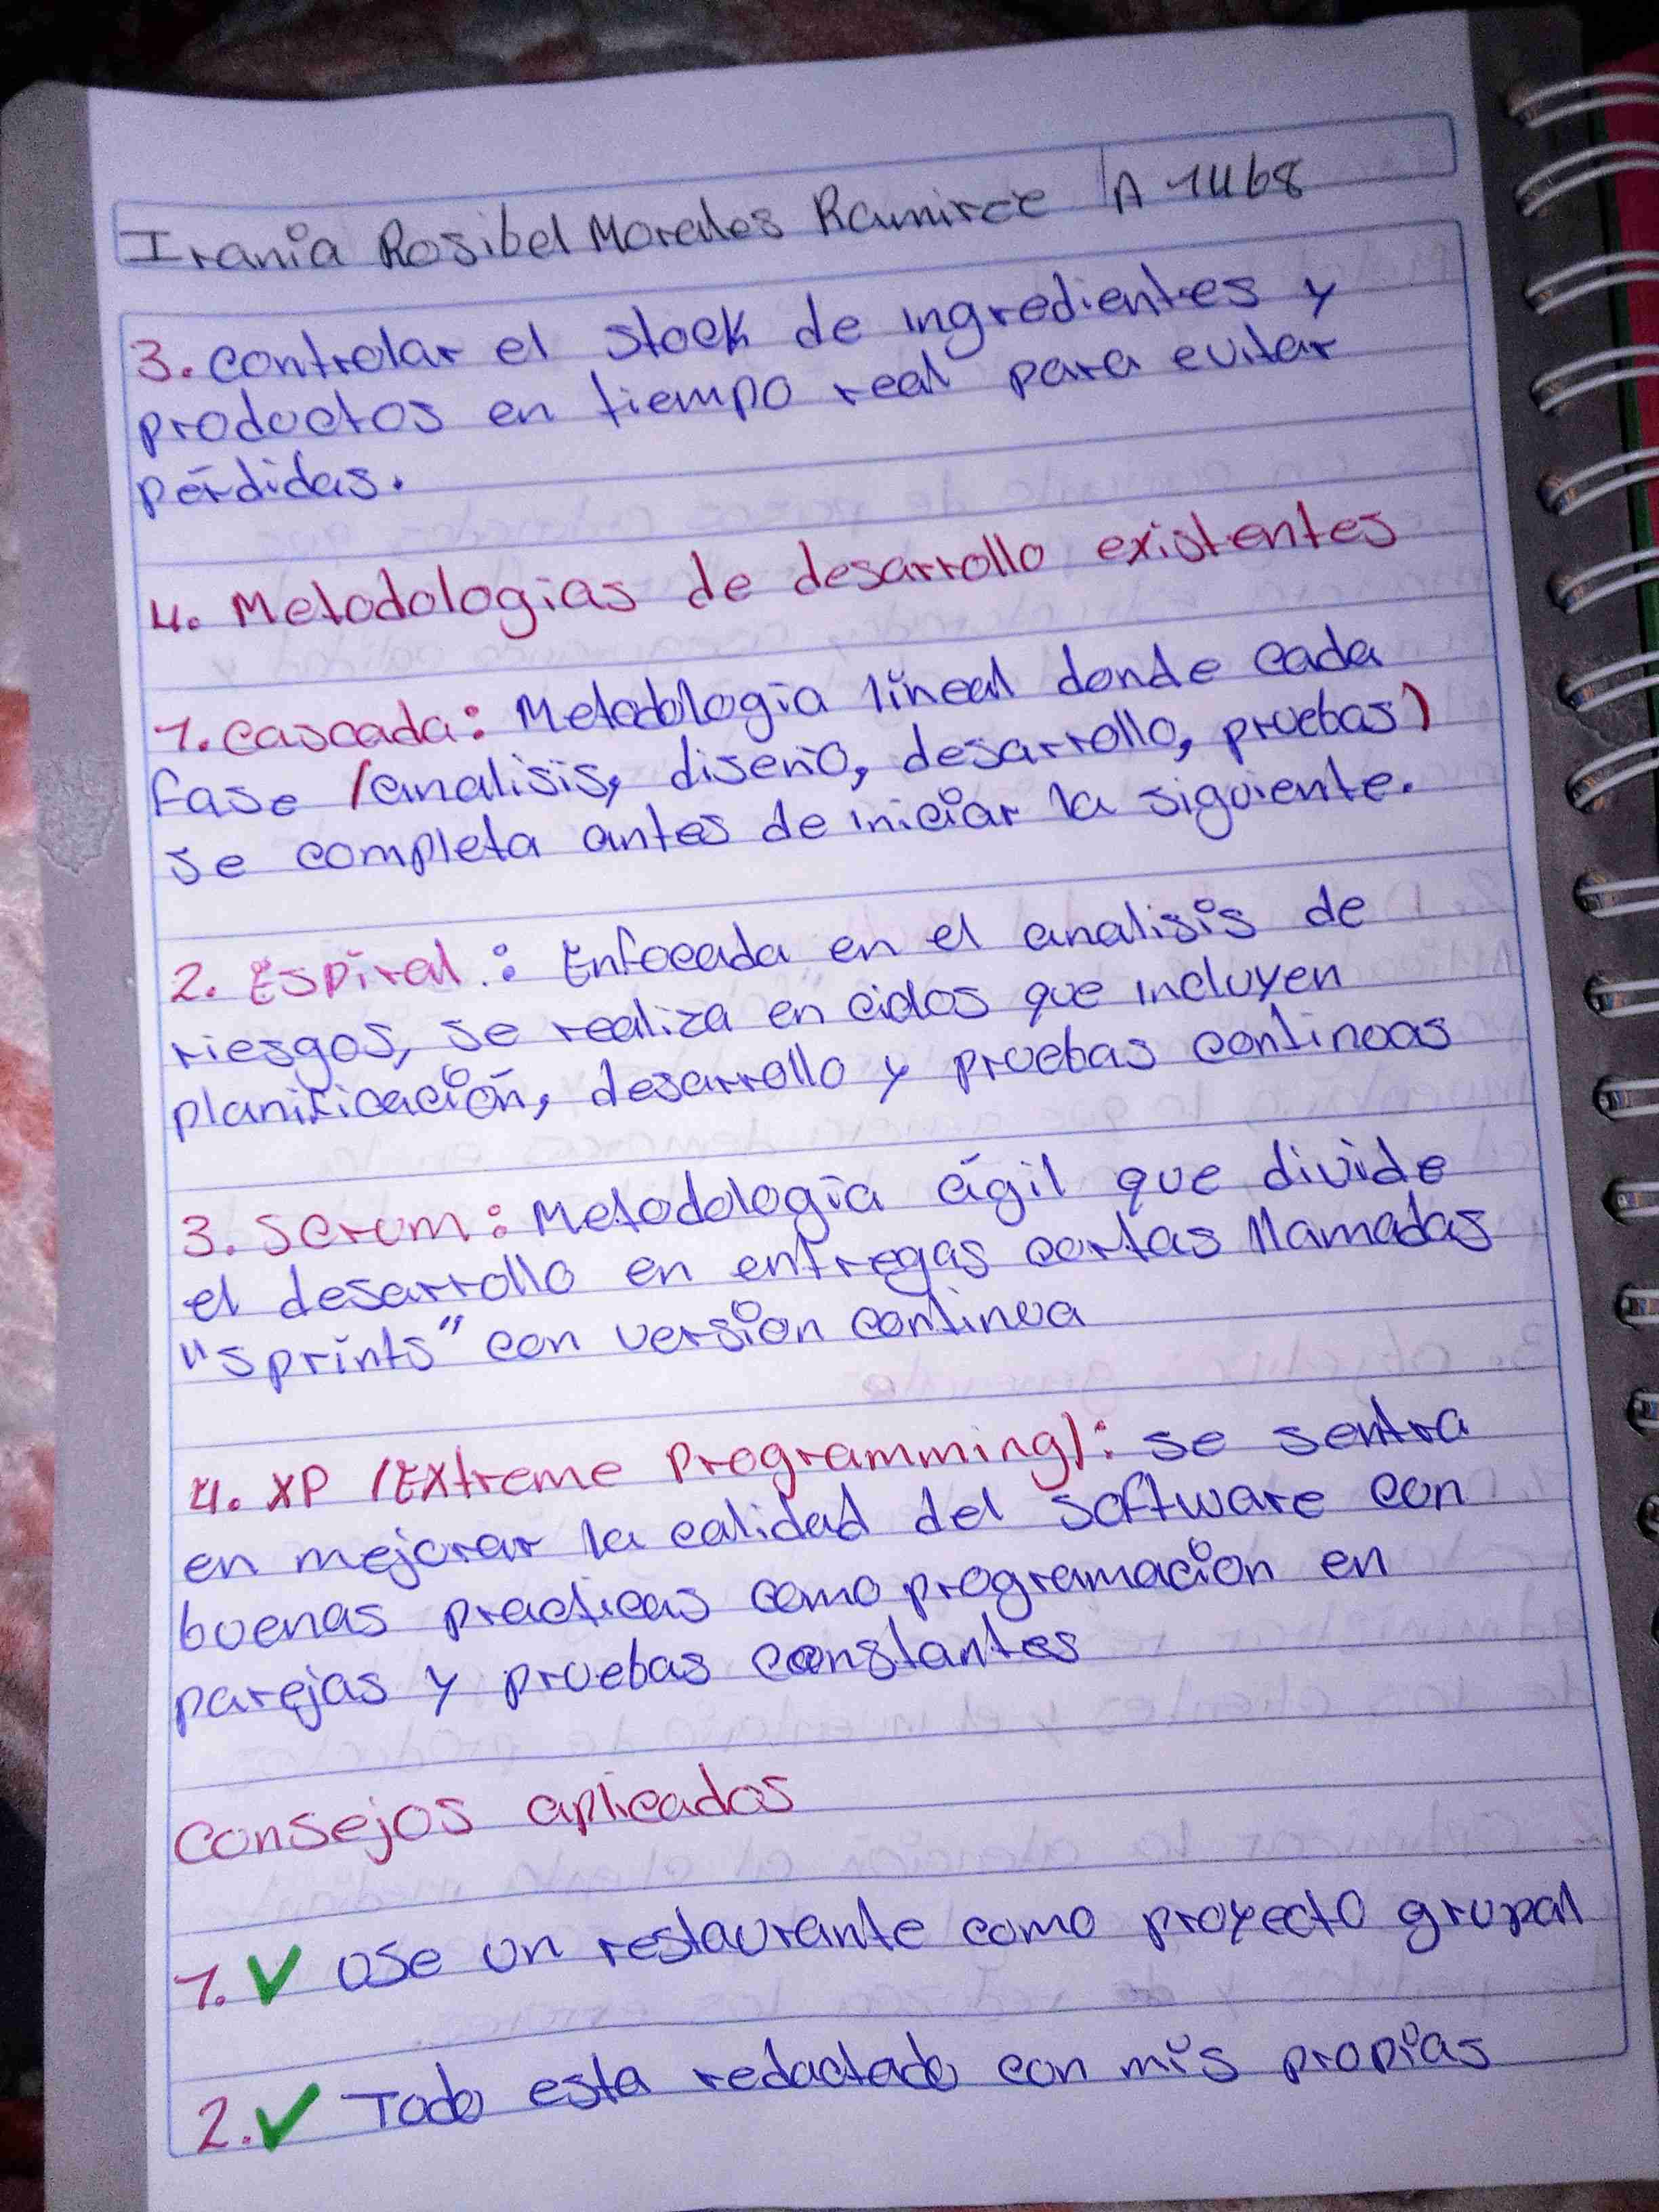 Irania Rosibel Morales Ramirez A 1468
3. controlar el stock de ingredientes y
productos en tiempo real para evitar
pérdidas.
4. Metodologias de desarrollo existentes
1. cascada: Metodologia lineal donde cada
fase (analisis, diseño, desarrollo, pruebas)
se completa antes de iniciar la siguiente.
2. Espiral.: Enfocada en el analisis de
riesgos, se realiza en ciclos que incluyen
planificación, desarrollo y pruebas continoas
3. Scrum: Metodologia ágil que divide
el desarrollo en entregas cortas llamadas
"sprints" con version continua
4. XP (Extreme Programming): se sentra
en mejorar la calidad del software con
buenas practicas como programacion en
parejas y pruebas constantes
Consejos aplicados
1. ✓ Use un restaurante como proyecto grupal
2. ✓ Todo esta redactado con mis propias